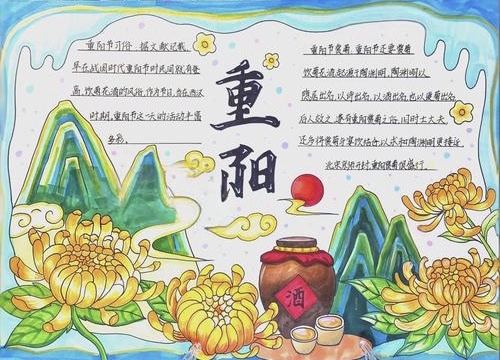 重阳节习俗，据文献记载，
早在战国时代重阳节时民间就有登
高，饮菊花酒的风俗，作为节日，当在西汉
时期，重阳节这一天的活动丰富
多彩，
重阳
重阳节赏菊，重阳节还要赏菊
饮菊花酒起源于陶渊明，陶渊明以
隐居出名，以诗出名，以酒出名，也以爱菊出名
后人效之，遂有重阳赏菊之俗，旧时士大夫
还多将赏菊与宴饮结合，以求和陶渊明更接近
北宋京师开封，重阳赏菊很盛行。
酒